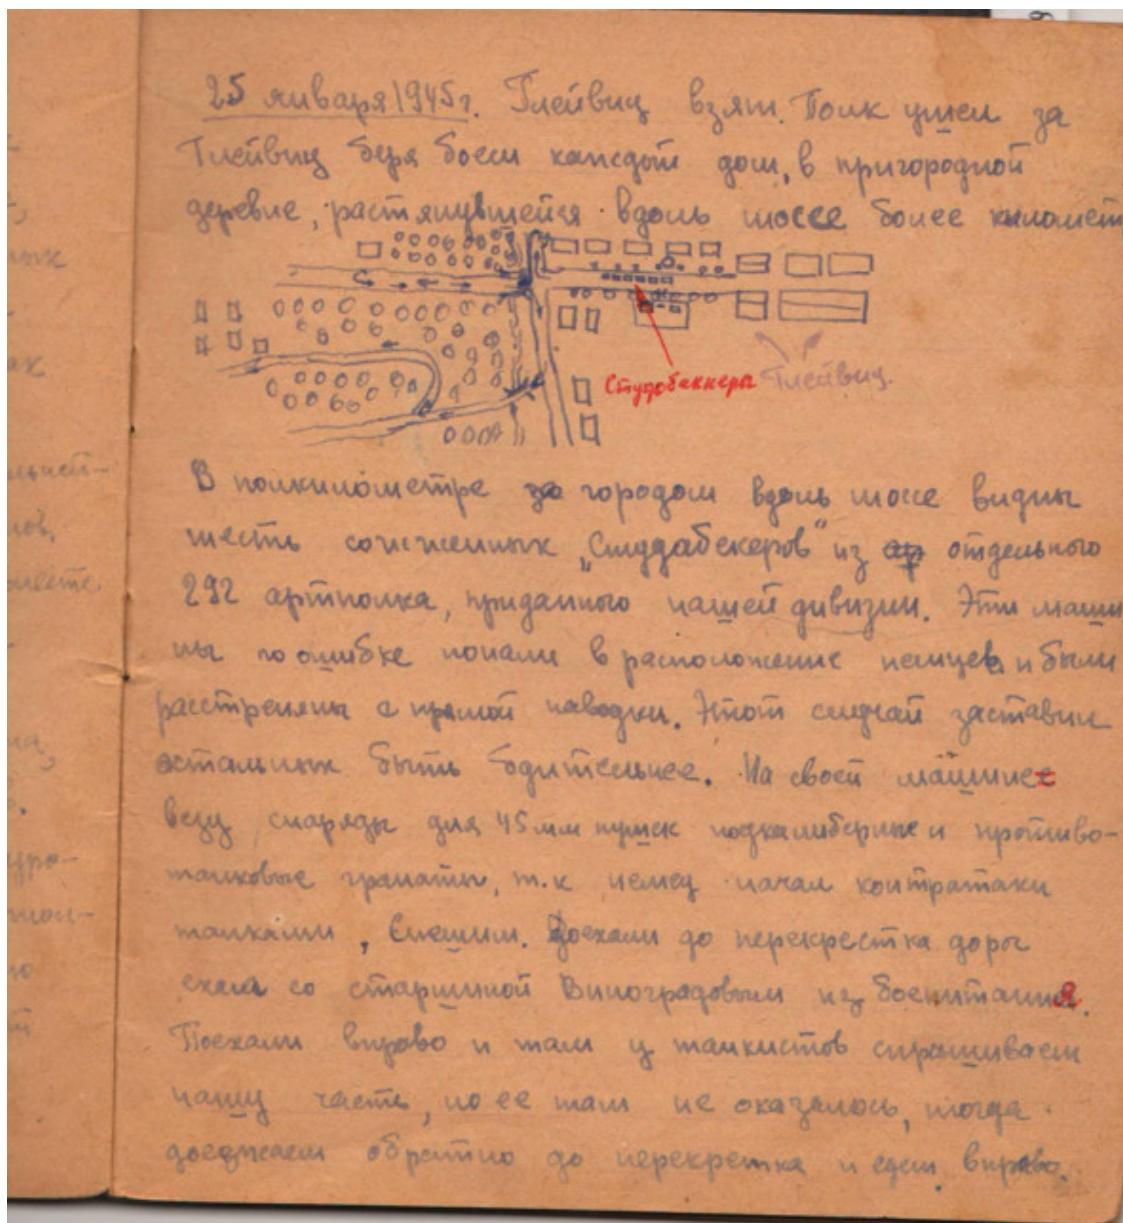 25 января 1945 г. Глейвиц взят. Полк ушел за
Глейвиц беря боем каждый дом, в пригородной
деревне, растянувшейся вдоль шоссе более километ
Студобеккеры Глейвиц.
В полкилометре за городом вдоль шоссе видны
шесть сожженных „Студдабекеров" из отдельного
292 артполка, приданного нашей дивизии. Эти маши
ны по ошибке попали в расположение немцев и были
расстреляны с прямой наводки. Этот случай заставил
остальных быть бдительнее. На своей машине
везу снаряды для 45 мм пушек подкалиберные и противо-
танковые гранаты, т.к немец начал контратаки
танками, Спешим. Доехали до перекрестка дорог
ехал со старшиной Виноградовым из боепитания.
Поехали вправо и там у танкистов спрашиваем
нашу часть, но ее там не оказалось, тогда
доезжаем обратно до перекретка и едем вправо.